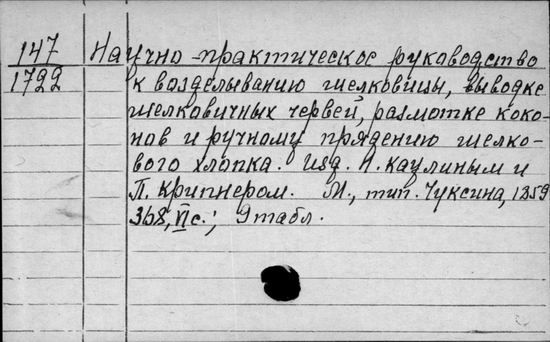 147
1722
Научно-практическое руководство
к возделыванию шелковицы, выводке
шелковичных червей, размотке коко-
нов и ручному прядению шелко-
вого хлопка. Изд. А. Каулиным и
П. Крипнером. М., тип. Чуксина, 1859
368, VI с.; 9 табл.